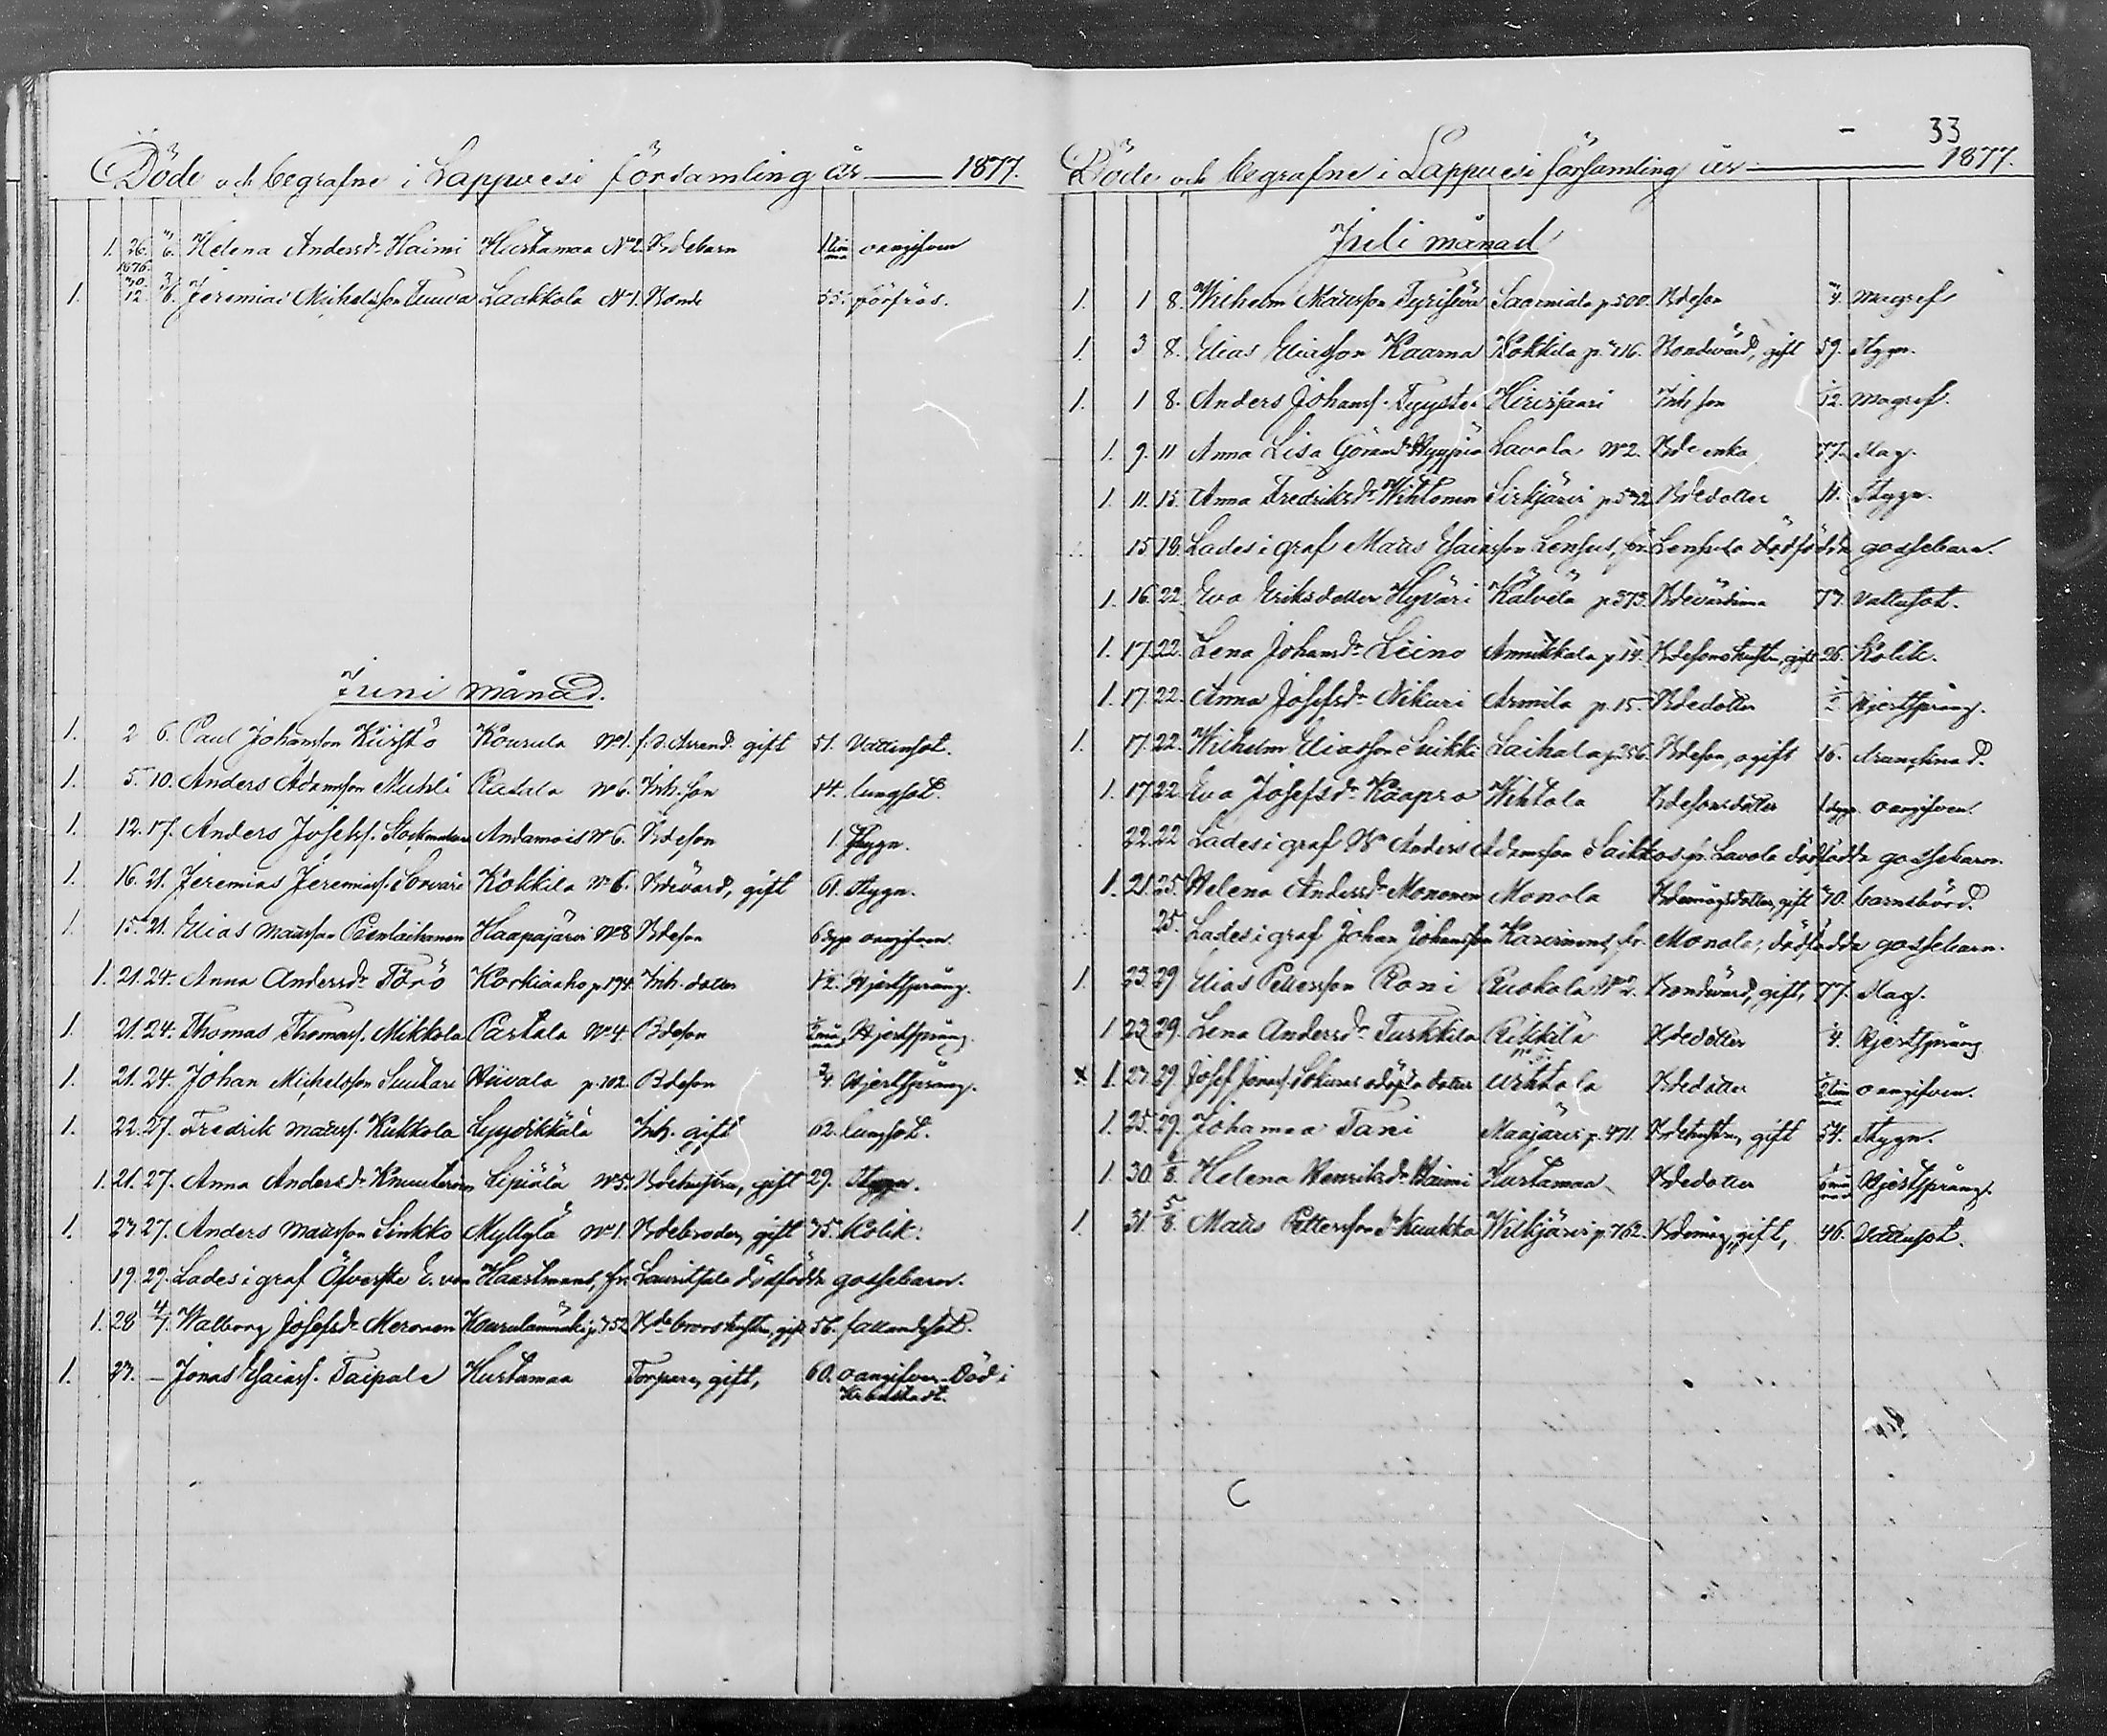 Döde och begrafne i Lappvesi församling år 1877.
1. 26. 6. Helena Andersdr Haimi Hurtamaa No 2. Bdebarn oangifven
1876.
1. 30/12 3/6. Jeremias Michelsson Tuuva Laakkola No 1. Bonde 55. förfrös.
Juni månad.
1. 2 6. Paul Johansson Kiiristö Kourula No 1. f.d. Arrend. gift 51. Vattusot.
1. 5. 10. Anders Adamsson Muhli Ratula No 6. Inh. son 14. lungsot.
1. 12. 17. Anders Josefss. No 6. Bdeson 1. Stygn.
1. 16. 21. Jeremias Jeremiass. Sorvari Kokkila No 6. Bdevärd, gift 61. Stygn.
1. 15. 21. Elias Matsson Haapajärvi No 8 Bdeson 6 dgr oangifven.
1. 21. 24. Anna Andersdr Törö Korkiaaho p. 194. Inh. dotter 1/2. Hjertsprång.
1. 21. 24. Thomas Thomass. Mikkola Partala No 4. Bdeson Hjertsprång.
1. 21. 24. Johan Michelsson Suutari Hiivala p. 102. Bdeson 3/4. Hjertsprång.
1. 22. 27. Fredrik Matss. Kukkola Lyysikkälä Inh. gift 62. lungsot.
1. 21. 27. Anna Andersdr Knuutinen Lipiälä No 5. Bdehustru, gift 29. Stygn.
1. 27. 27. Anders Matsson Sinkko Myllylä No 1. Bdebroder, gift 35. Kolik.
19. 29. Lades i graf Öfverste E. von Haartmans, fr. Lauritsala dödfödda gossebarn.
1. 28 4/7. Walborg Josefsdr Meronen Kourulanmäki p. 352 Bdebrorshustru, gift 56. fallandesot.
1. 27. — Jonas Esaiass. Taipale Hurtamaa Torpare, gift, 60. oangifven. Död i
Kronstadt.
33
Döde och begrafne i Lappvesi församling år 1877.
Juli månad
1. 1 8. Wilhelm Matsson p. 500. Bdeson Magref
1. 3 8. Elias Eliasson Kaarna Kokkila p. 216. Bondevärd, gift 59. Stygn.
1. 1 8. Anders Johanss. Tyyster Hirisaari Inh. son Magref.
1. 9. 11 Anna Lisa Göransdr Hyyppiä Lavola No 2. Bde enka 77. Slag.
1. 11. 15. Anna Fredriksdr Wihtonen Sirkjärvi p. 572 Bdedotter 11. Stygn.
15 18. Lades i graf Mats Esaiasson Lensus, fr. Lensula dödfödda gossebarn.
1. 16. 22. Eva Eriksdotter Hyväri Kälvelä p. 373. Bdevärdinna 77. Vattusot.
1. 17. 22. Lena Johansdr Leino Armikkala p. 14. Bdesonshustru, gift 26. Kolik.
1. 17. 22. Anna Josefsdr Nikuri Armila p. 15. Bdedotter Hjertsprång.
1. 17. 22. Wilhelm Eliasson Suikki Laihala p. 256. Bdeson, ogift 16. drunknad.
1. 17 22. Eva Josefsdr Kaapro Wihtola Bdesonsdotter 1 dgr oangifven.
22. 22 Lades i graf Bn Anders Adamsson Saikkos fr. Lavola dödfödda gossebarn.
1. 21. 25. Helena Andersdr Mononen Monola Bdemågsdotter, gift barnsbörd.
25. Lades i graf Johan Johansson Kasurinens, fr. Monola, dödfödda gossebarn.
1. 23. 29 Elias Pettersson Roni Ruokola No 2. Bondevärd, gift, 77. Slag.
1 22 29. Lena Andersdr Turkkila Rikkilä Bdedotter Hjertsprång
x 1. 27. 29. Josef odöpta dotter Wihtola Bdedotter oangifven.
1. 25. 29. Johanna Tani Maajärvi p. 471. Bdehustru, gift 54. Stygn.
1. 30. Helena Henriksdr Haimi Hurtamaa Bdedotter Hjertsprång.
1. 31. 5/8. Mats Pettersson Wilkjärvi p. 762. Bdemåg, gift, 46. Vattusot.